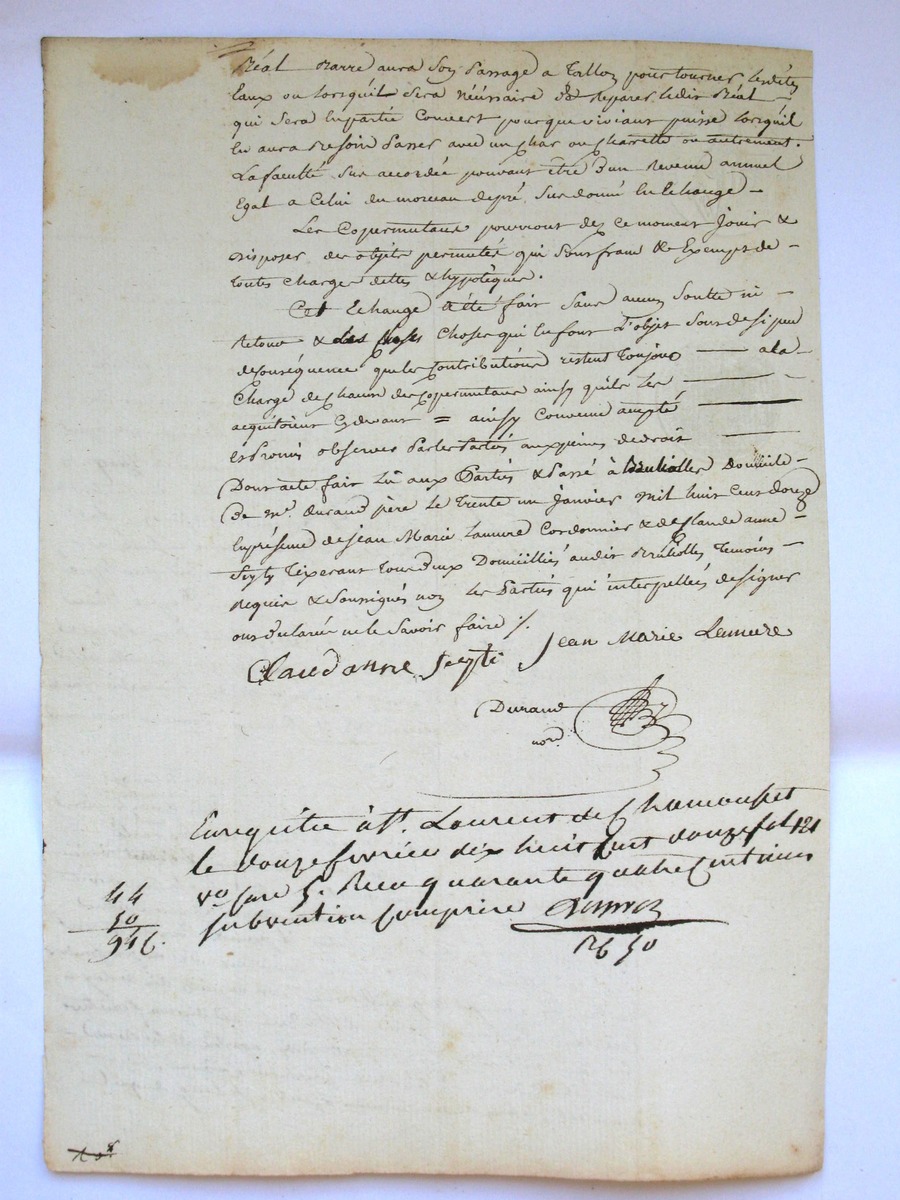 Réal Barre aura son Passage a Tallon pour tourner lesdites
Eaux ou lorsquil sera nécéssaire de Reparer ledit Réal —
qui sera en partie Couvert pour que viviant puisse lorsquil
En aura Besoin Passer avec un Char ou Charrette ou autrement.
La faculté sus accordée pouvant être d'un Revenu annuel
Egal a Celui du morceau de pré sus donné en Echange —
Les Copermutans pourront dez ce moment Jouir &
disposer des objets permutés qui sont franc & Exempts de —
toutes Charges dettes & hypotêques.
Cet Echange a été fait sans aucun Soulte ni —
Retour & les Choses qui en font L'objet sont de si peu
de Conséquence que les Contributions restent Toujours — a la —
Charge de chacun des Copermutans ainsy quils Les —
acquitoient Cydevant = ainsy Convenu accepté —
Et Promis observer Par les Parties aux peines de droit —
Dont acte fait Lû aux Parties & Passé à Brulliolles domicile —
De mr. durand père Le Trente un Janvier Mil huit Cent douze
En présence de Jean Marie Lamure Cordonnier & de Claude anne —
Seyty Tixerant Tous deux Domiciliés audit Brulliolles Temoins —
Requis & Soussignés non Les Parties qui interpellés de signer
ont déclarés ne le Savoir faire /.
Claud anne Seyti Jean Marie Lamure
Durand
nore
Enregistré à St. Laurent de Chamousset
le douze fevrier dix huit cent douze fol 121
vo Case 5. Recu quarante quatre Centimes
subvention comprise
44
50
94 c.
Rb 50